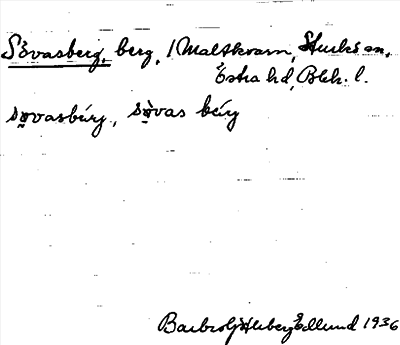 Sövasberg, berg, i Maltkvarn, Sturkö sn,
Östra hd, Blek. l.
sövasbärg, sövas bärg
Edlund 1936